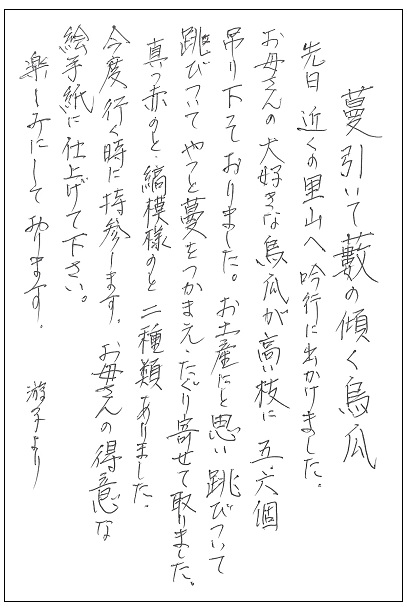 蔓引いて藪の傾く烏瓜
先日 近くの里山へ吟行に出かけました。
お母さんの大好きな烏瓜が高い枝に 五、六個
吊り下っておりました。お土産にと思い 跳びついて
跳びついてやっと蔓をつかまえ、たぐり寄せて取りました。
真っ赤のと縞模様のと二種類ありました。
今度行く時に持参します。お母さんの得意な
絵手紙に仕上げて下さい。
楽しみにしております。 游子より